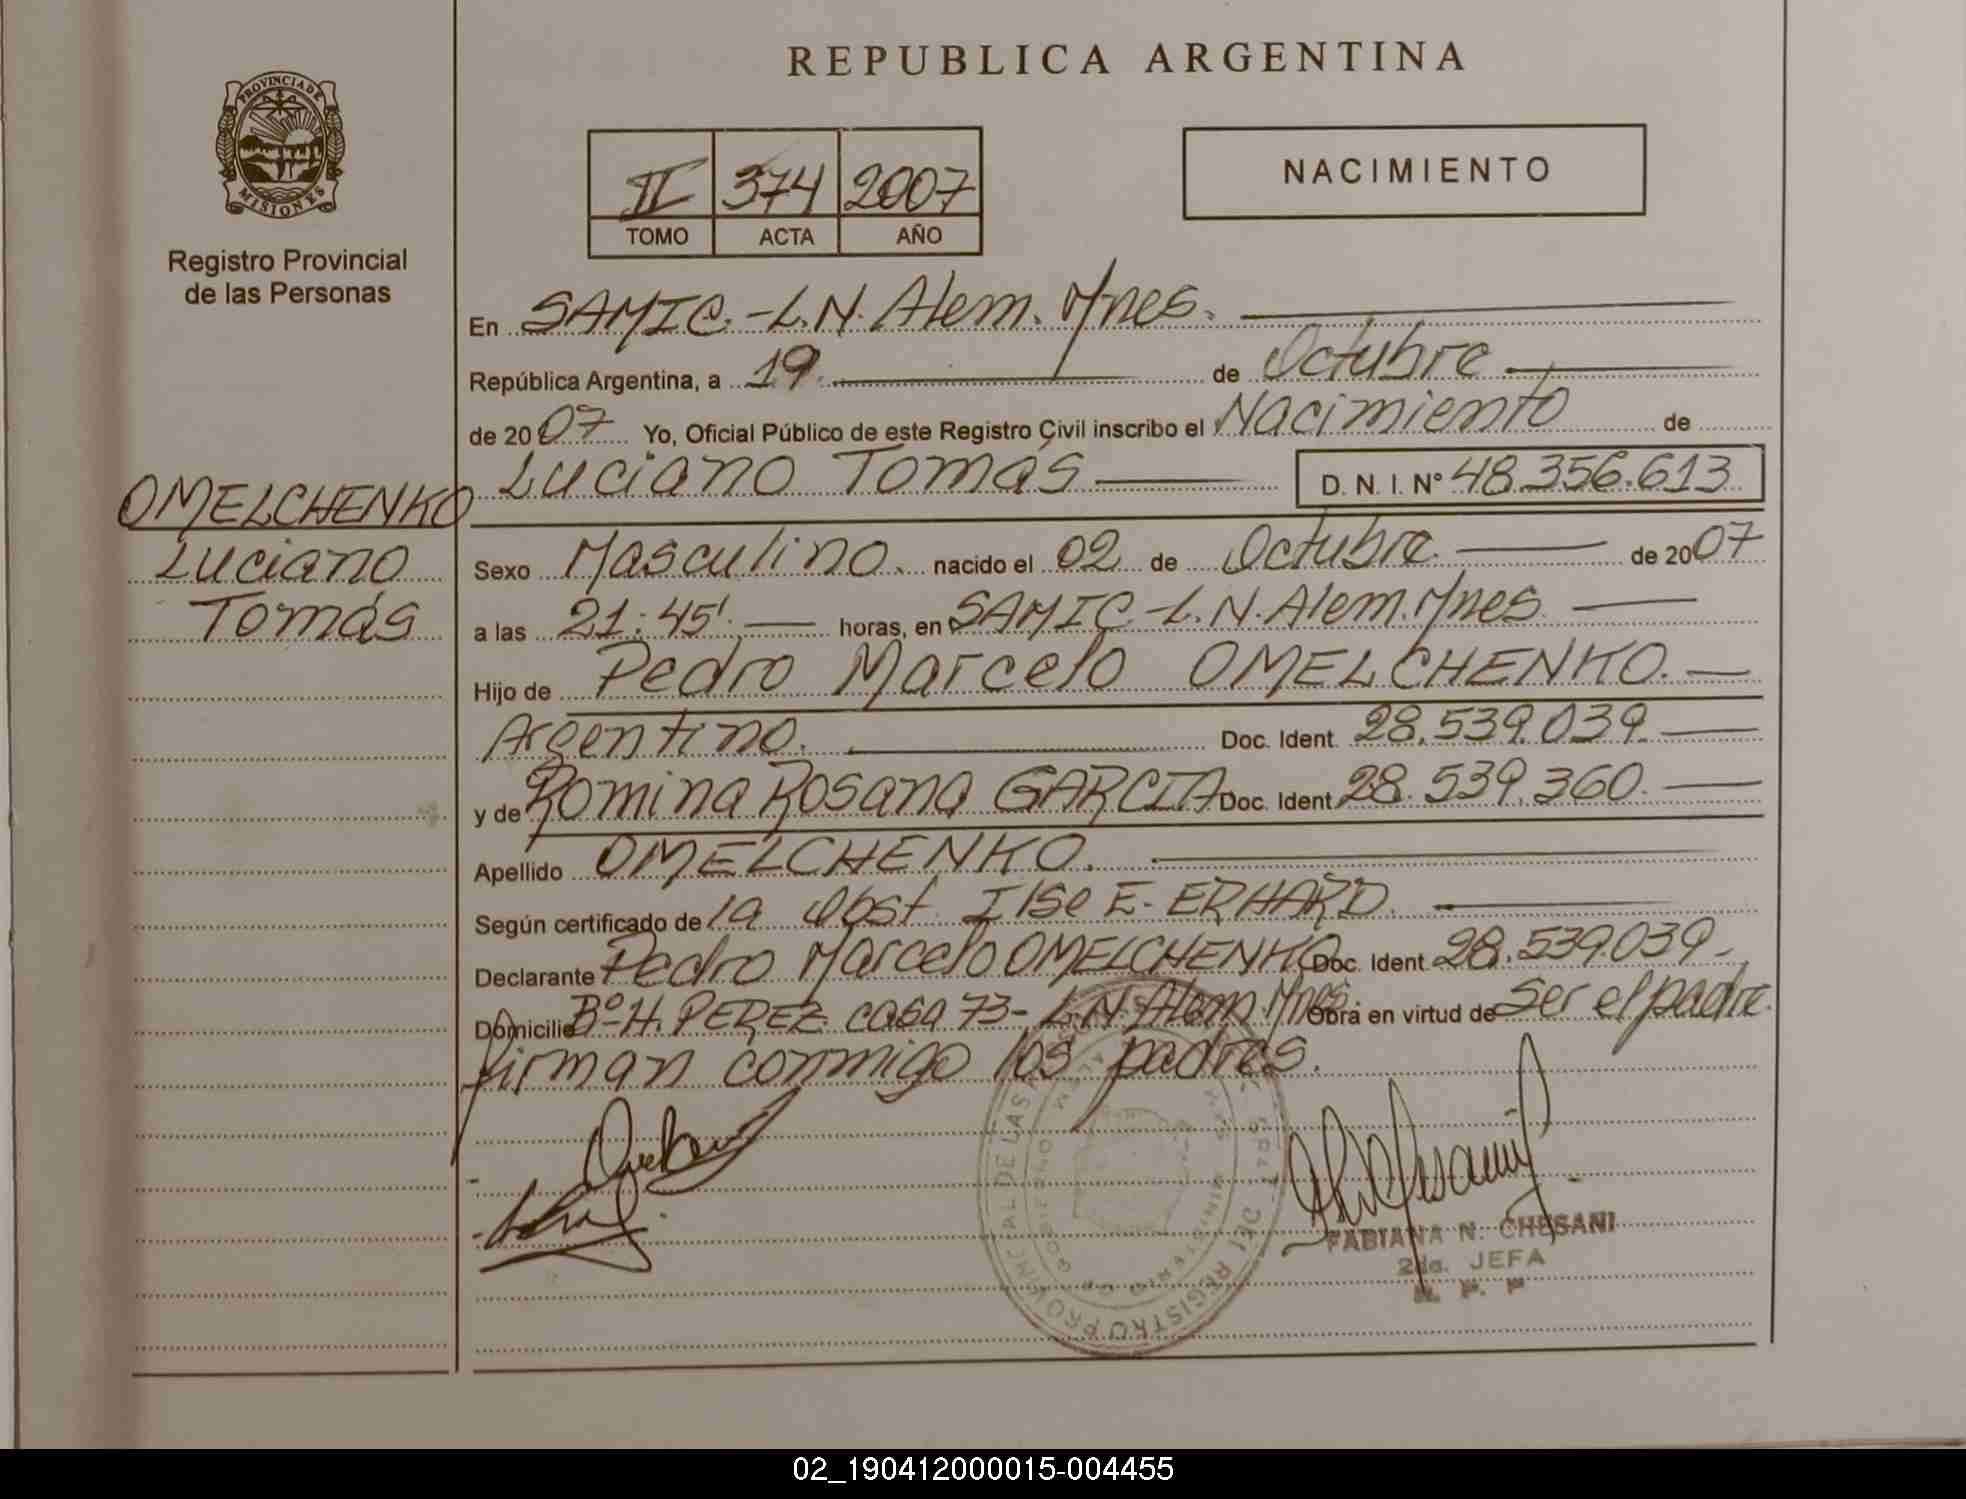 REPUBLICA ARGENTINA
PROVINCIA DE
MISIONES
Registro Provincial
de las Personas
II 374 2007
TOMO ACTA AÑO
NACIMIENTO
En SAMIC.-L.N. Alem. Mnes.
República Argentina, a 19. de Octubre
de 2007 Yo, Oficial Público de este Registro Civil inscribo el Nacimiento de
Luciano Tomás D. N. I. Nº 48.356.613
OMELCHENKO
Luciano
Tomás
Sexo Masculino. nacido el 02 de Octubre de 2007
a las 21:45' horas, en SAMIC-L.N.Alem.Mnes
Hijo de Pedro Marcelo OMELCHENKO.
Argentino. Doc. Ident. 28.539.039.
y de Romina Rosana GARCIA Doc. Ident. 28.539.360.
Apellido OMELCHENKO.
Según certificado de la Obst. Ilse E. ERHARD.
Declarante Pedro Marcelo OMELCHENKO Doc. Ident. 28.539.039
Domicilio Bº H. PEREZ casa 73- L.N.Alem.Mnes. Obra en virtud de ser el padre.
firman conmigo los padres.
FABIANA N. CHESANI
2da. JEFA
02_190412000015-004455